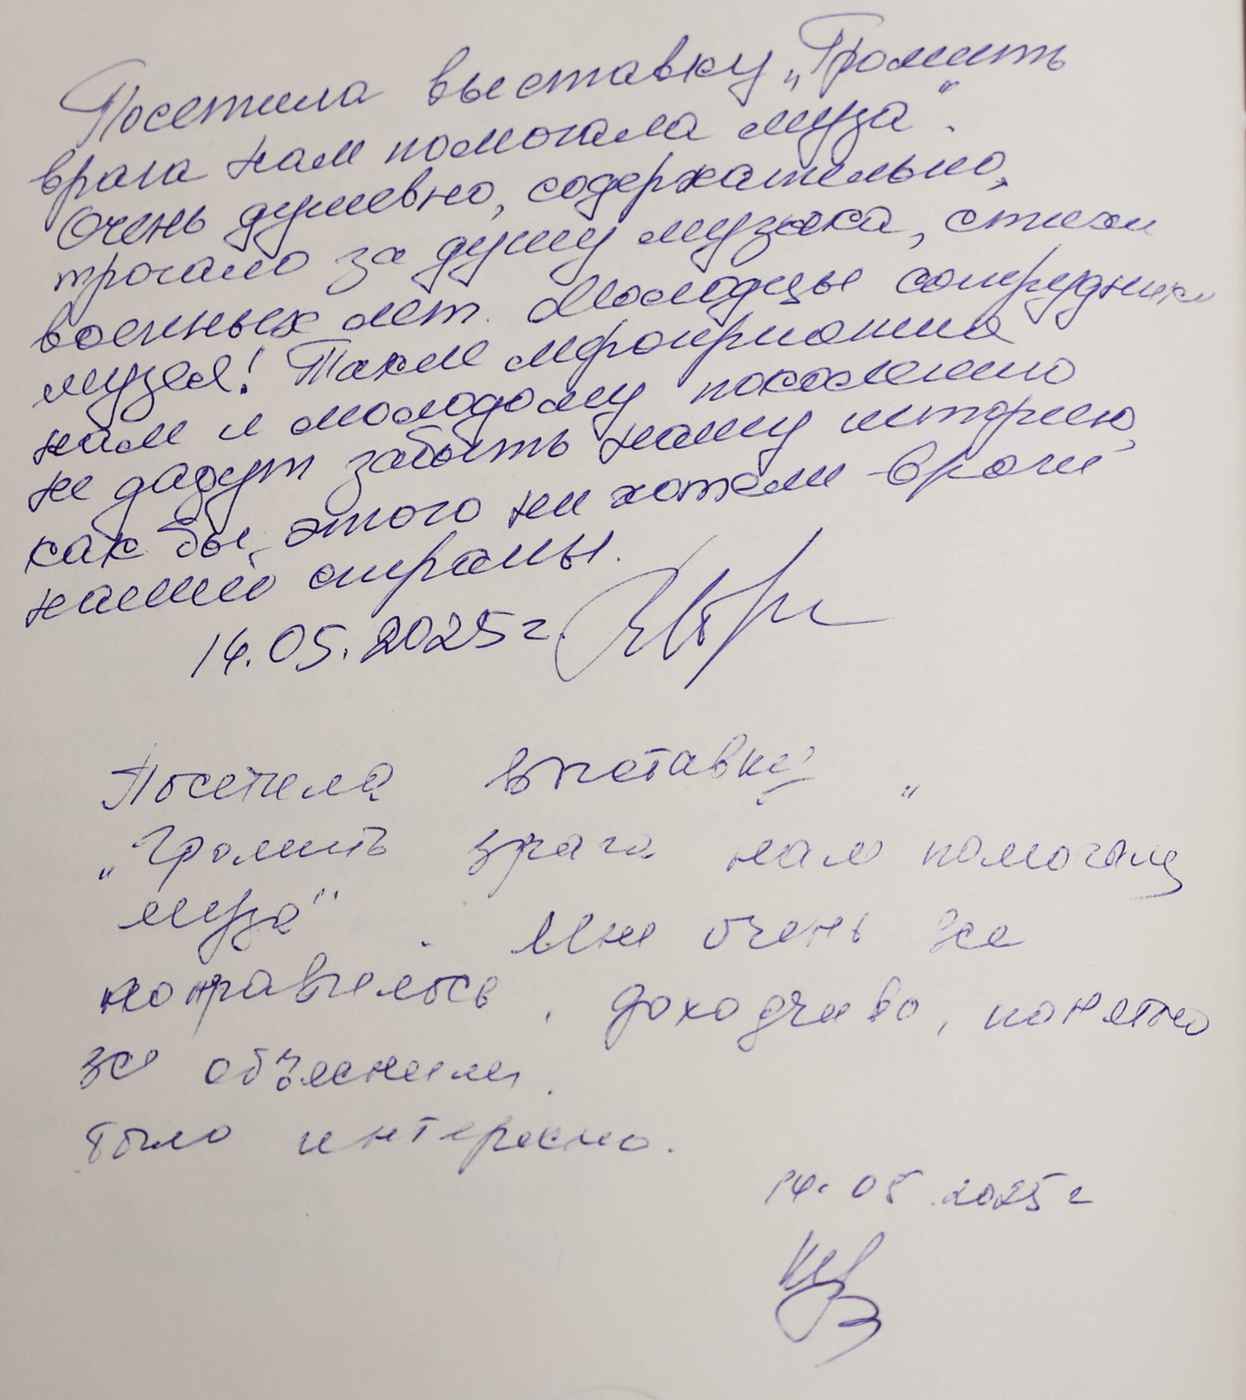 Посетила выставку „Громить
врага нам помогала муза".
Очень душевно, содержательно,
трогало за душу музыка, стихи
военных лет. Молодцы сотрудники
музея! Такие мероприятия
нам и молодому поколению
не дадут забыть нашу историю,
как бы этого ни хотели враги
нашей страны.
14.05.2025г.
Посетила выставку „
„Громить врага нам помогала
муза". Мне очень
понравилось, доходчиво, понятно
все объяснили.
Было интересно.
14.05.2025г